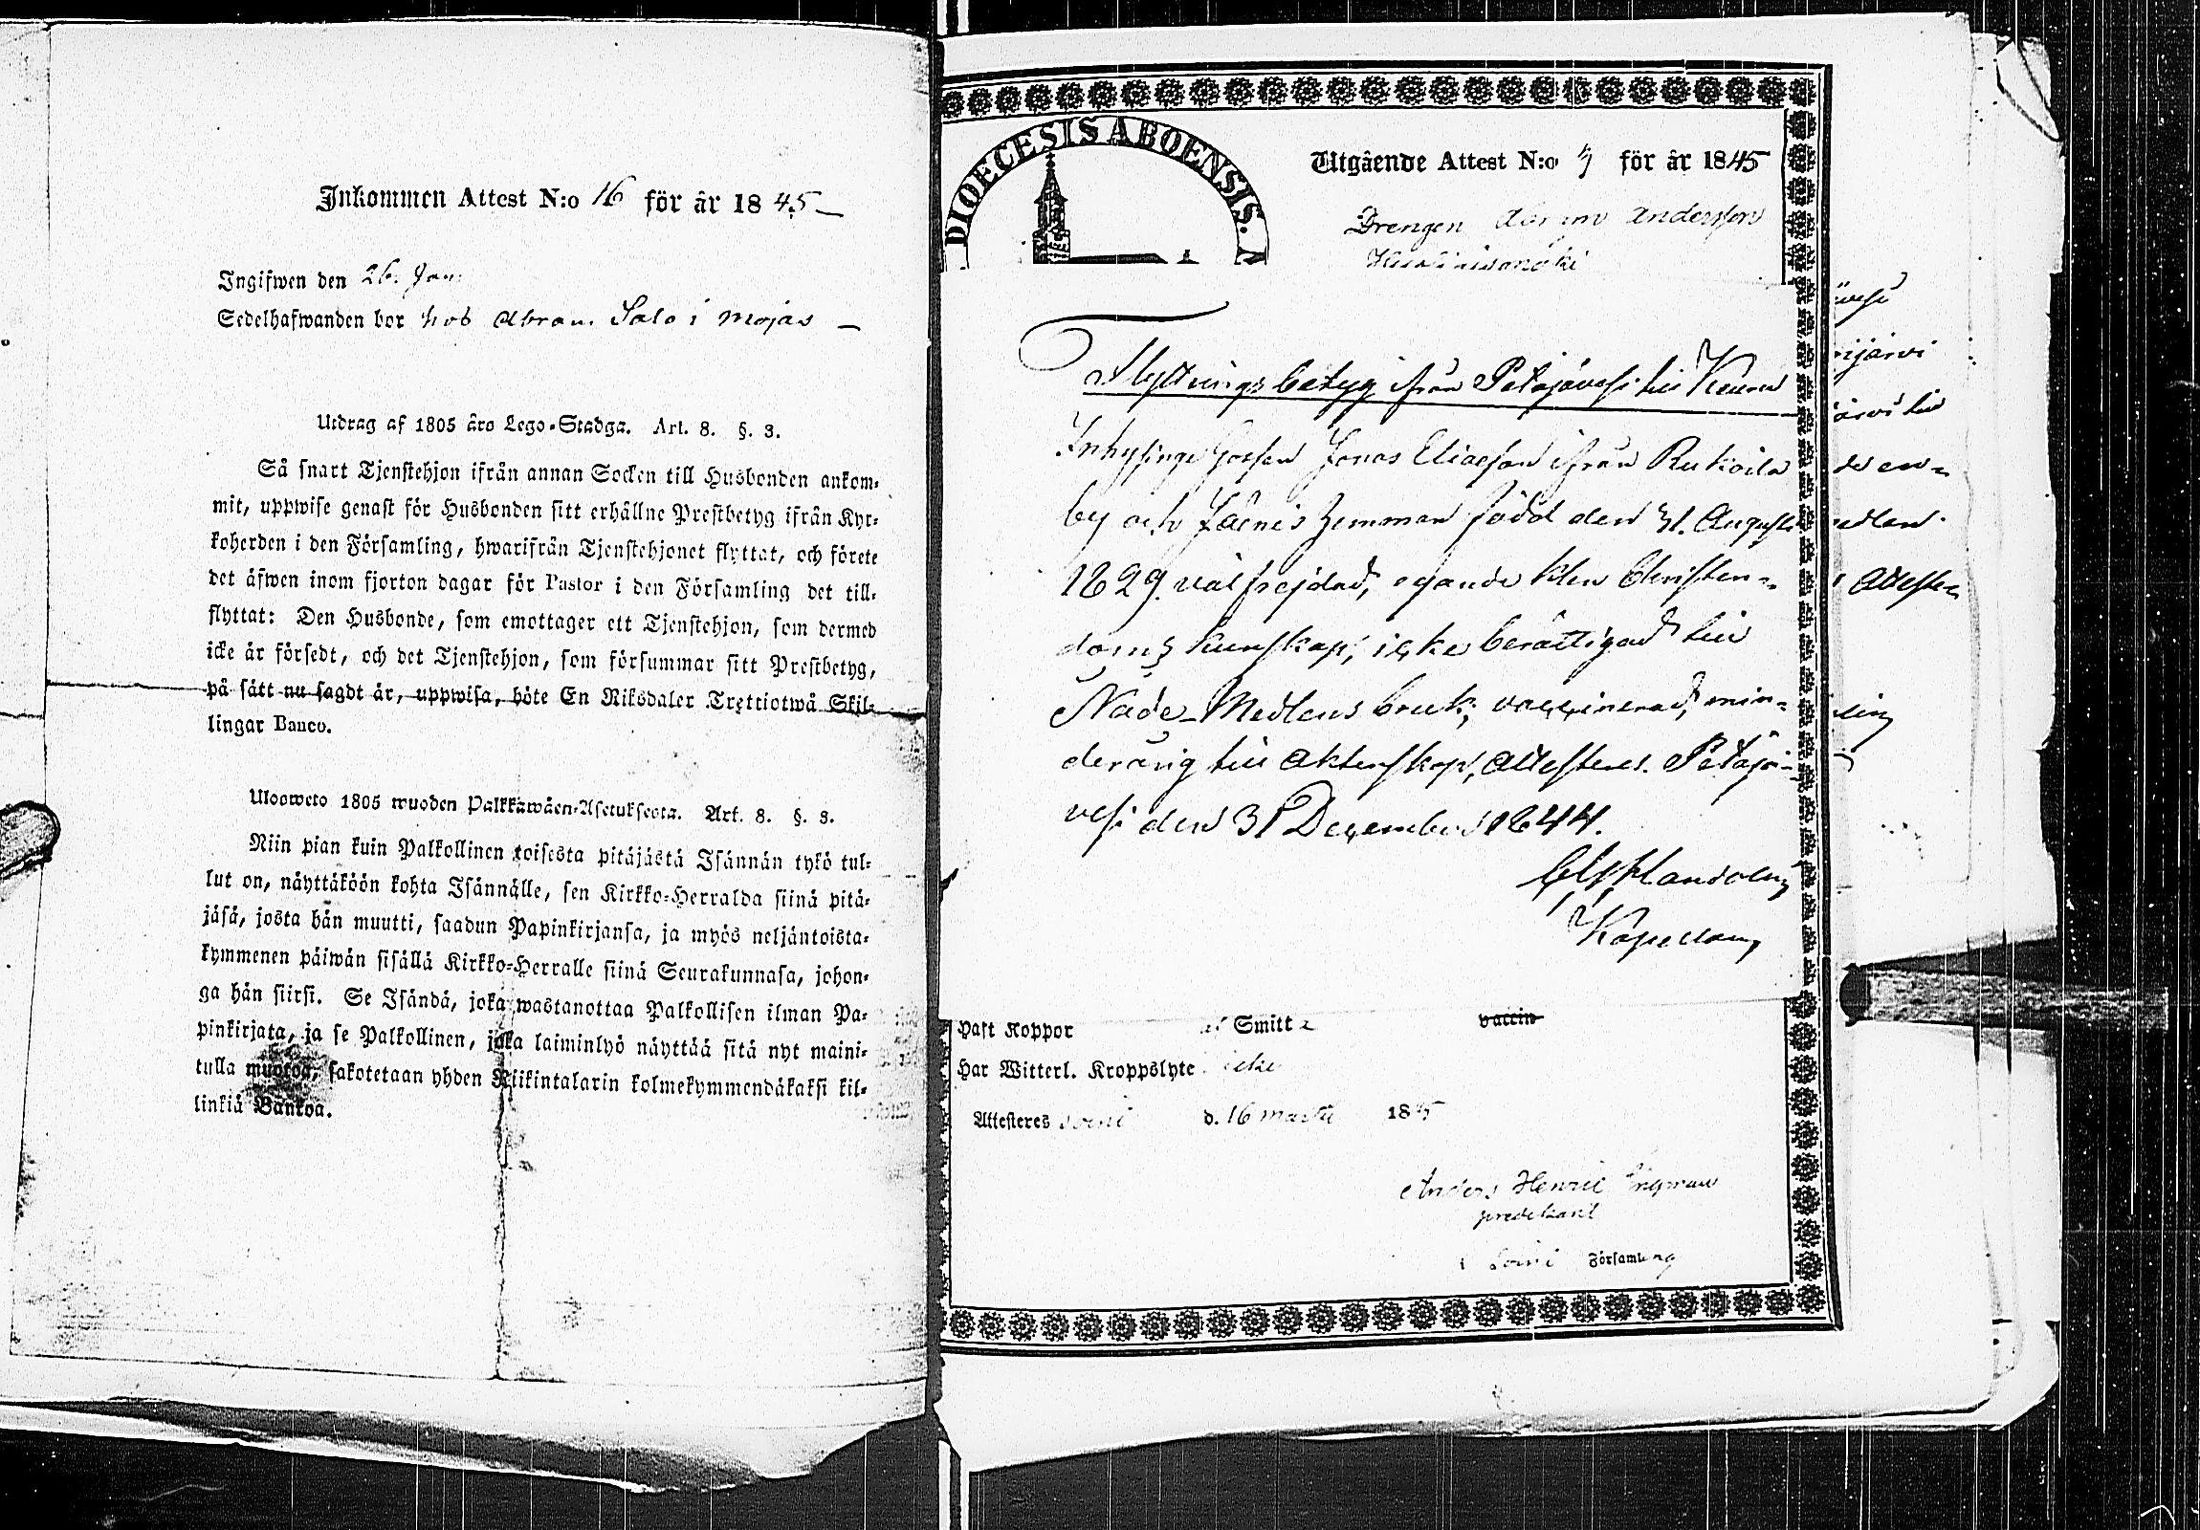 Inkommen Attest N:o 16 för år 1845
Ingifwen den 26. Jan.
Sedelhafwanden bor hos Abram Salo i Mojas
Utdrag af 1805 års Lego-Stadga. Art. 8. §. 3.
Så snart Tjenstehjon ifrån annan Socken till Husbonden ankom-
mit, uppwise genast för Husbonden sitt erhållne Prestbetyg ifrån Kyr-
koherden i den Församling, hwarifrån Tjenstehjonet flyttat, och förete
det äfwen inom fjorton dagar för Pastor i den Församling det till-
flyttat: Den Husbonde, som emottager ett Tjenstehjon, som dermed
icke är försedt, och det Tjenstehjon, som försummar sitt Prestbetyg,
på sätt nu sagdt är, uppwisa, böte En Riksdaler Trettiotwå Skil-
lingar Banco.
Ulosweto 1805 wuoden Palkkawäen-Asetuksesta. Art. 8. §. 3.
Niin pian kuin Palkollinen toisesta pitäjästä Isännän tykö tul-
lut on, näyttäköön kohta Isännälle, sen Kirkko-Herralda siinä pitä-
jäsä, josta hän muutti, saadun Papinkirjansa, ja myös neljäntoista-
kymmenen päiwän sisällä Kirkko-Herralle siinä Seurakunnasa, johon-
ga hän siirsi. Se Isändä, joka wastanottaa Palkollisen ilman Pa-
pinkirjata, ja se Palkollinen, joka laiminlyö näyttää sitä nyt maini-
tulla muotoa, sakotetaan yhden Riikintalarin kolmekymmendäkaksi kil-
linkiä Bankoa.
DIOECESIS ABOENSIS.
Utgående Attest N:o för år 1845
Drengen Abram Andersson
Flyttnings betyg ifrån Petäjävesi till Keuru
Inhysinge Gossen Jonas Eliasson ifrån Kukoila
by och hemman född den 31. Augusti
1829. välfrejdad, egande klen Christen-
doms kunskap, icke berättigad till
Nåde-Medlens bruk, vaccinerad, min-
derårig till Äktenskap, Attesteres. Petäjä-
vesi den 31 December 1844.
Kapellan
Haft Koppor Smitt vaccin
Har Witterl. Kroppslyte icke
Attesteres Soini d. 16 Martii 1845
Anders Henric
predikant
i Soini Församling
ijärvi
järvi till
de en-
edlens
Attestes